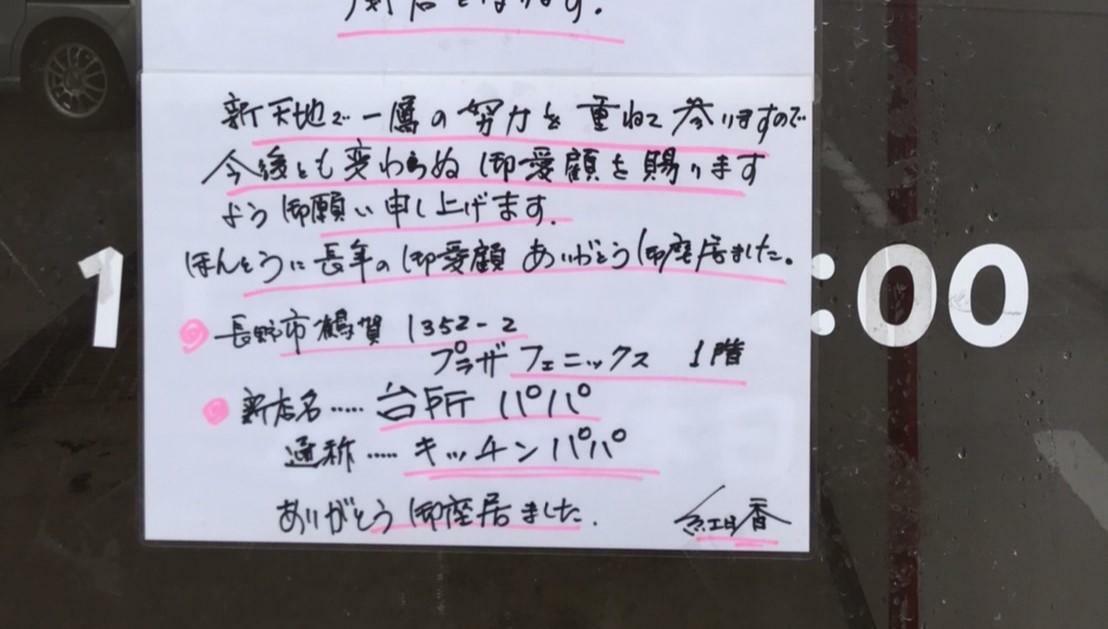 となります。
新天地で一層の努力を重ねて参りますので
今後とも変わらぬ御愛顧を賜ります
よう御願い申し上げます。
ほんとうに長年の御愛顧ありがとう御座居ました。
1
:00
◎長野市鶴賀1352-2
プラザフェニックス 1階
◎新店名‥‥‥台所パパ
通称‥‥‥キッチンパパ
ありがとう御座居ました。